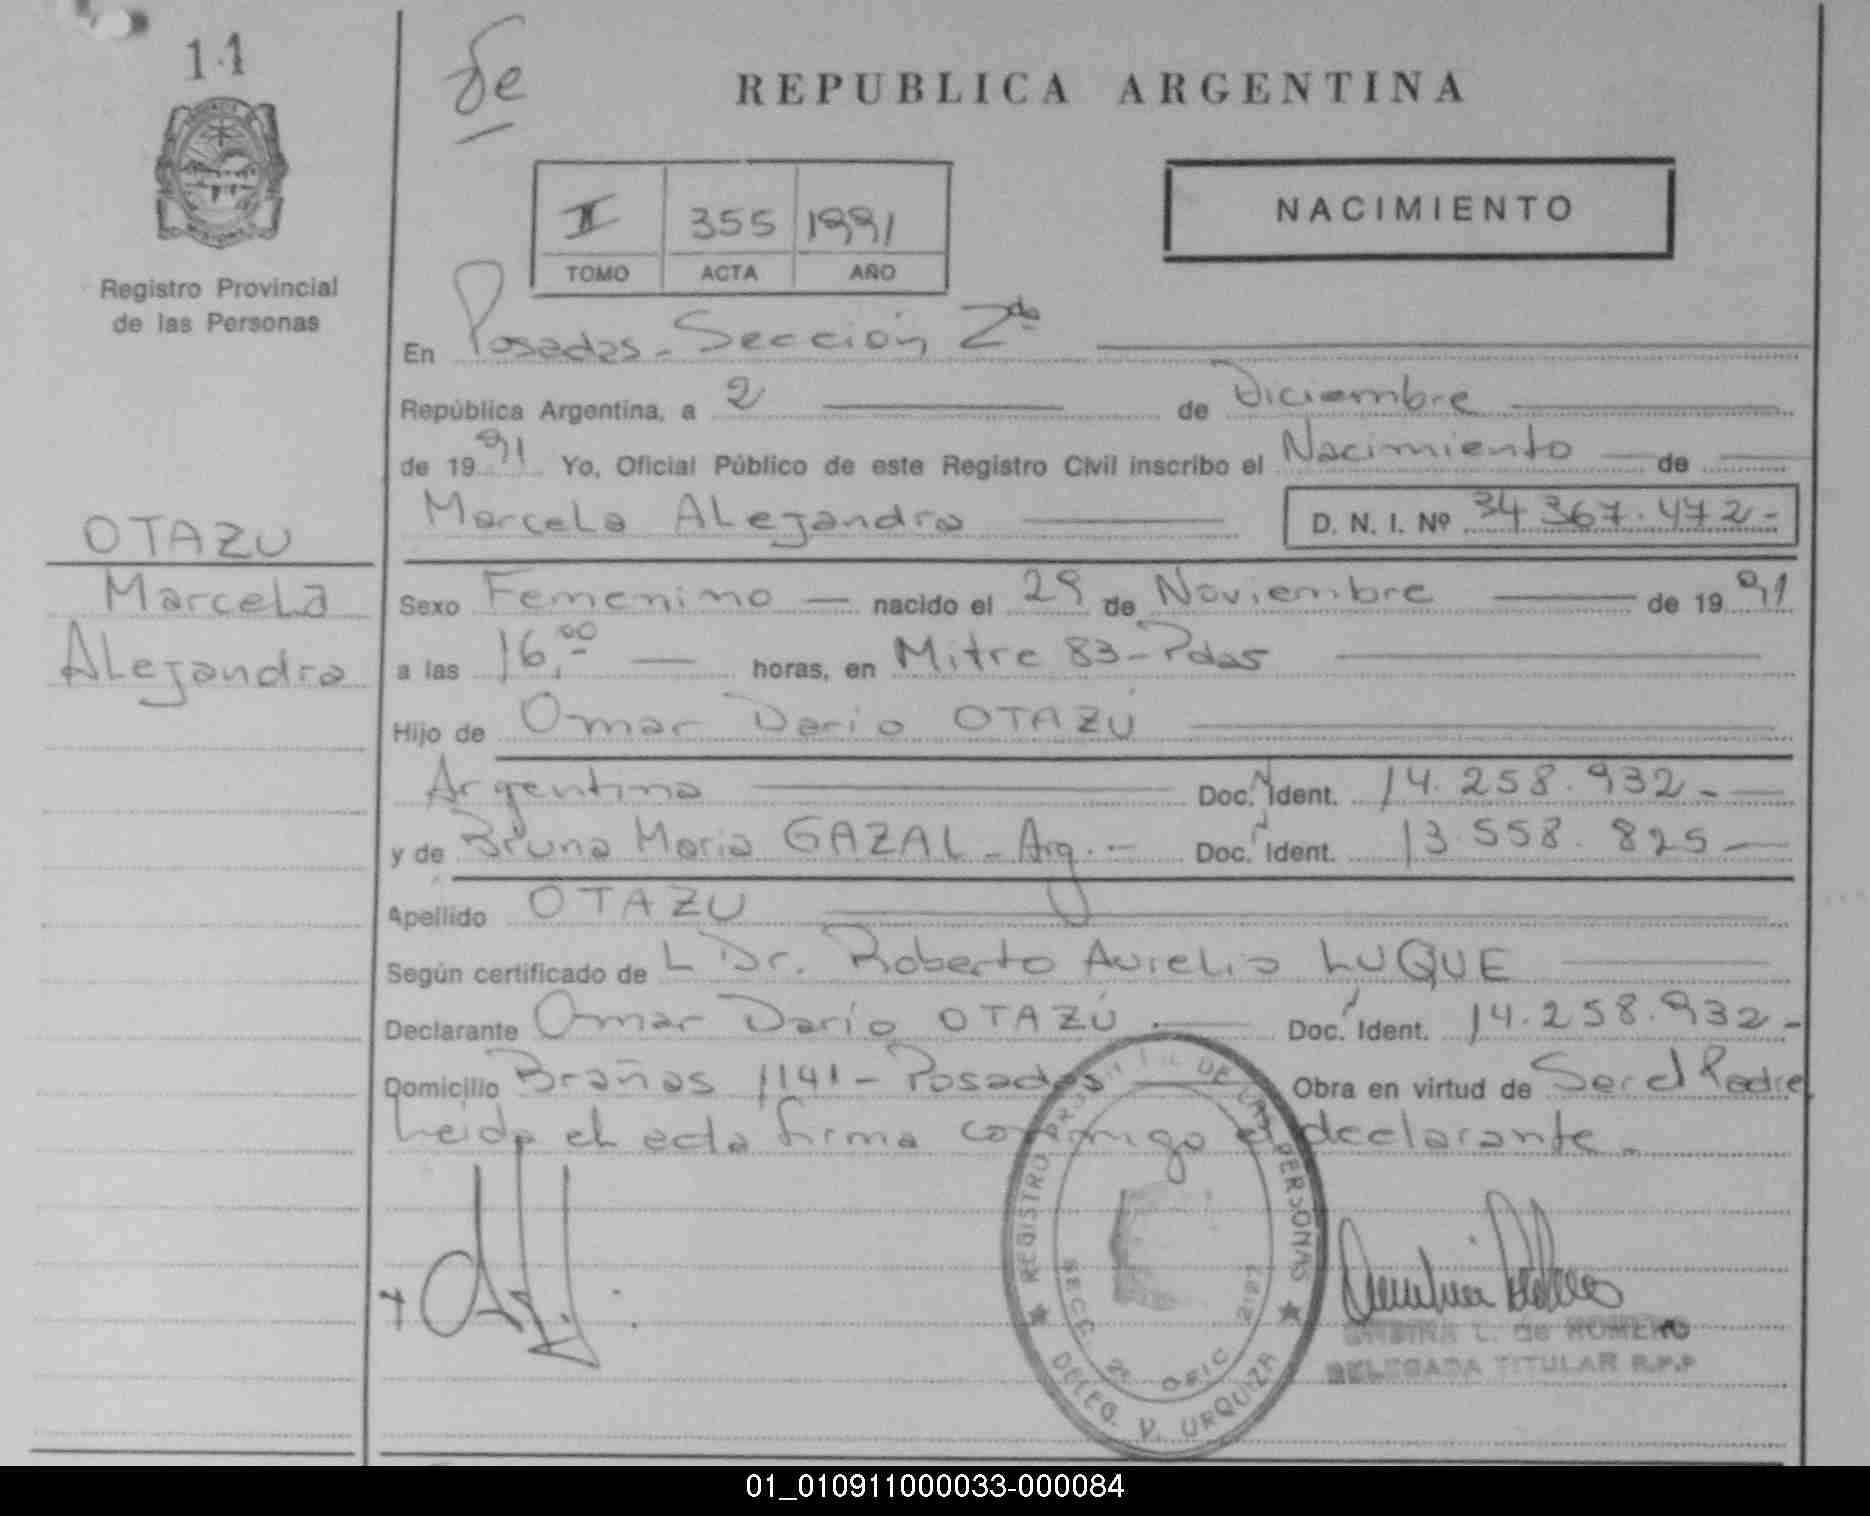 14
de
REPUBLICA ARGENTINA
II 355 1991
TOMO ACTA AÑO
NACIMIENTO
Registro Provincial
de las Personas
En Posadas - Sección 2da
República Argentina, a 2 de Diciembre
de 1991 Yo, Oficial Público de este Registro Civil inscribo el Nacimiento de
Marcela Alejandra D. N. I. Nº 34 367.472-
OTAZU
Marcela
Alejandra
Sexo Femenino nacido el 29 de Noviembre de 1991
a las 16,00 horas, en Mitre 83 - Pdas
Hijo de Omar Dario OTAZÚ
Argentino Doc. Ident. 14.258.932-
y de Bruna Maria GAZAL - Arg. - Doc. Ident. 13.558.825
Apellido OTAZU
Según certificado de L Dr. Roberto Aurelio LUQUE
Declarante Omar Darío OTAZÚ . Doc. Ident. 14.258.932-
Domicilio Brañas 1141 - Posadas Obra en virtud de Ser el Padre
Leida el acta firma conmigo el declarante.
REGISTRO DE LAS PERSONAS
SECC. 2ª OFIC 2107
DELEG. V. URQUIZA
L. de ROMERO
DELEGADA TITULAR R.P.P
01_010911000033-000084